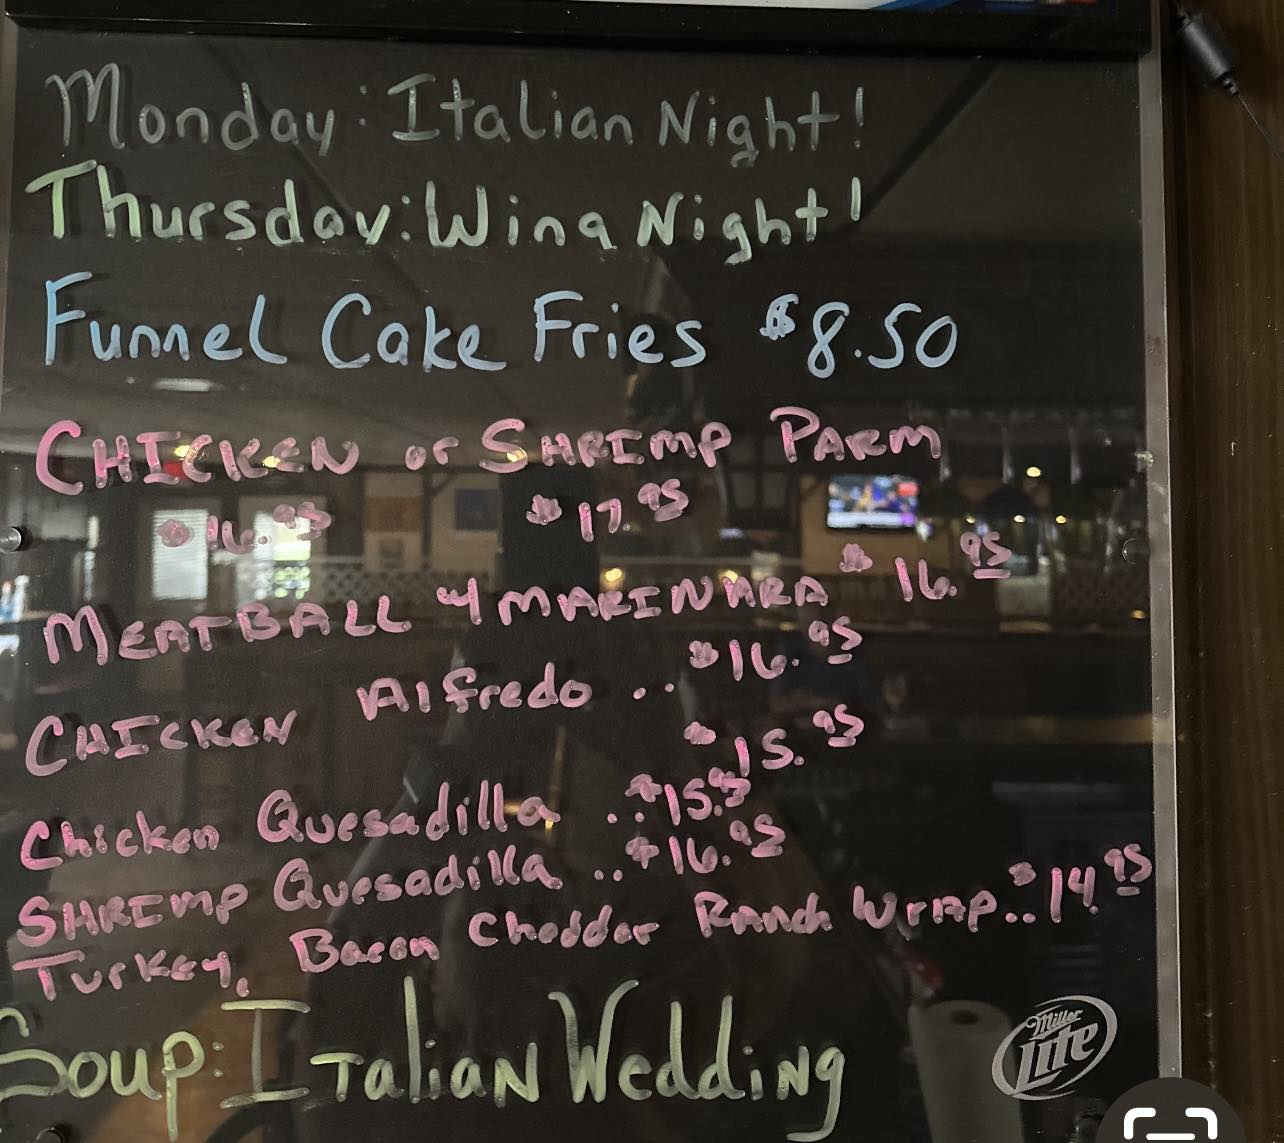 Monday: Italian Night!
Thursday: Wing Night!
Funnel Cake Fries $8.50
CHICKEN or SHRIMP PARM
$16.95 $17.95
MEATBALL MARINARA $16.95
CHICKEN Alfredo .. $16.95
$15.95
Chicken Quesadilla .. $15.95
SHRIMP Quesadilla .. $16.95
Turkey, Bacon Cheddar Ranch Wrap .. $14.95
Soup: ITaliaN WeddiNg
Miller
Lite